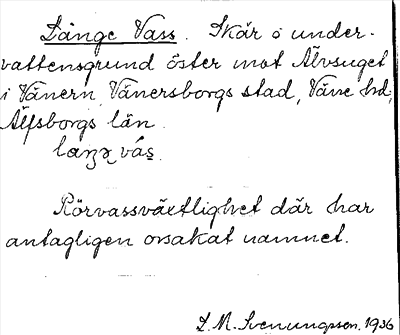 Långe Vass. Skär o under-
vattensgrund öster mot Älvsuget
i Vänern, Vänersborgs stad, Väne hd,
Älfsborgs län.
vás.
Rörvassväxtlighet där har
antagligen orsakat namnet.
L. M. Svenungsson. 1936